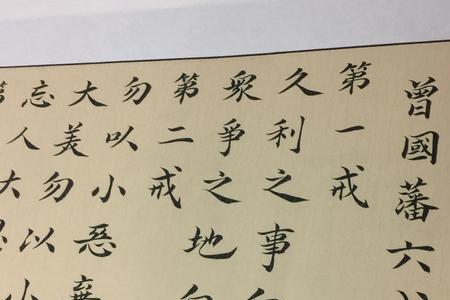 曾國藩六
第一戒
久利之事
眾爭之地
第二戒
勿以小惡棄
大美勿以小
忘人大